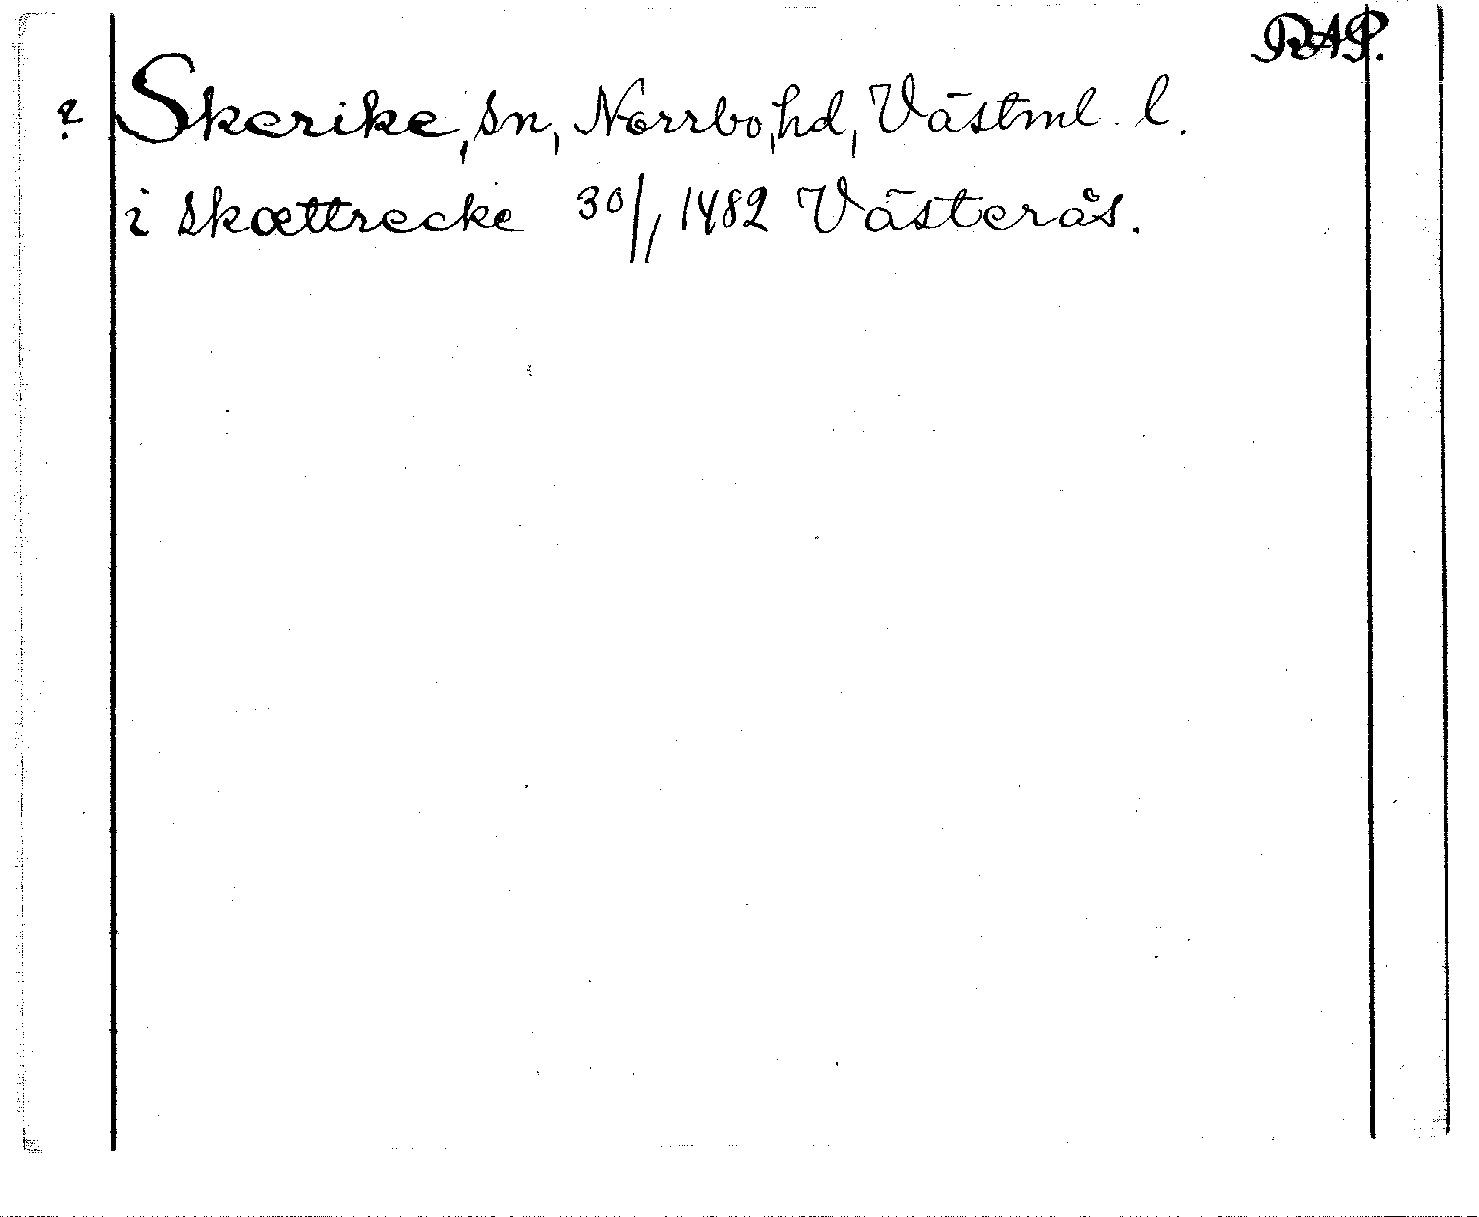 RAP.
? Skerike, sn, Norrbo, hd, Västml. l.
i skættrecke 30/1 1482 Västerås.